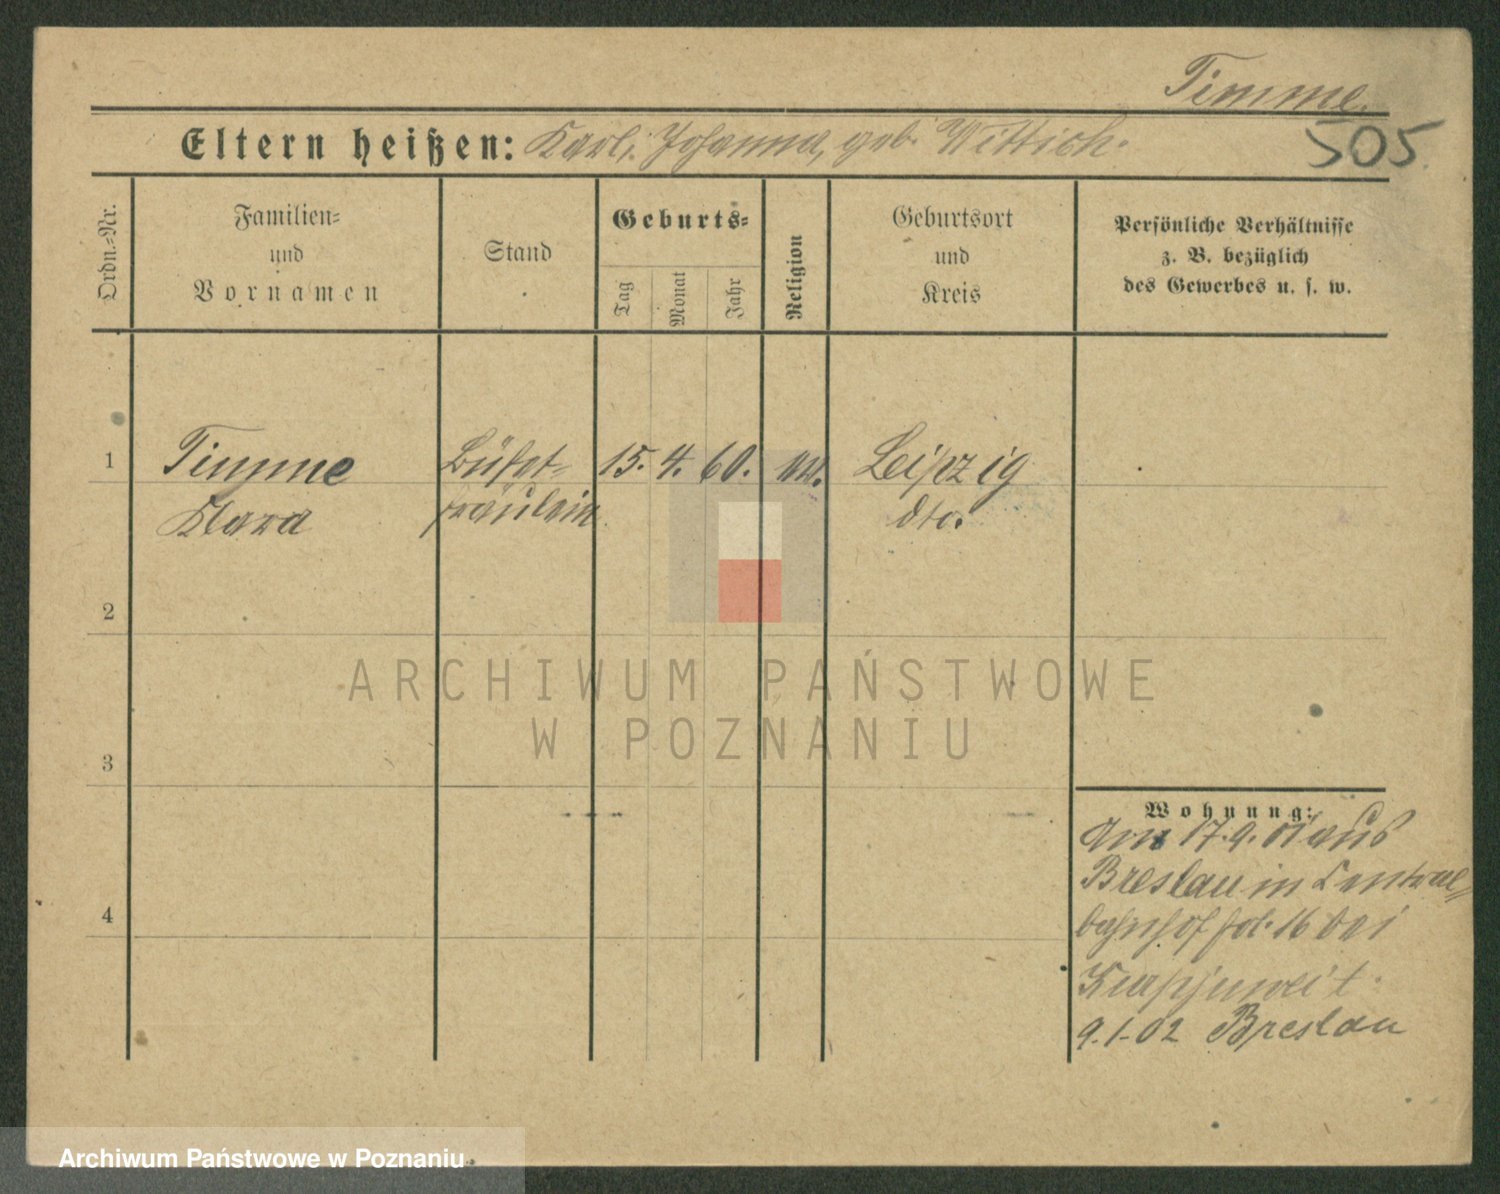 Timme.
505
Eltern heißen: Karl, Johanna, geb. Wittich.
Ordn.-Nr.
Familien-
und
Vornamen
Stand
Geburts-
Tag
Monat
Jahr
Religion
Geburtsort
und
Kreis
Persönliche Verhältnisse
z. B. bezüglich
des Gewerbes u. s. w.
1
Timme
Klara
Büfet-
fräulein
15. 4. 60.
ev.
Leipzig
dto.
2
3
4
Wohnung:
Am 17.9.01 aus
Breslau in Central-
bahnhof 16 bei
9.1.02 Breslau
ARCHIWUM PAŃSTWOWE
W POZNANIU
Archiwum Państwowe w Poznaniu